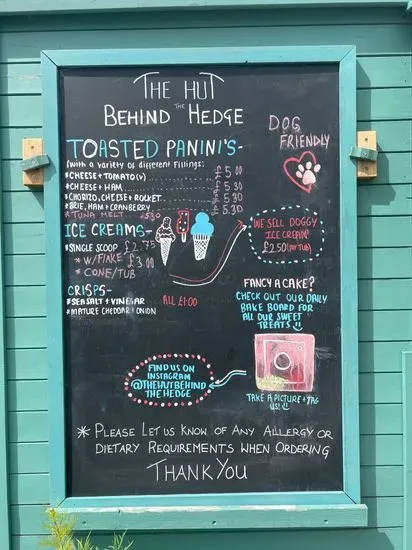 THE HUT
BEHIND THE HEDGE
DOG FRIENDLY
TOASTED PANINI'S-
(with a variety of different fillings:
*CHEESE + TOMATO (V) £5.00
*CHEESE + HAM £5.30
*CHORIZO, CHEESE + ROCKET £5.30
*BRIE, HAM + CRANBERRY £5.30
*TUNA MELT £5.30
ICE CREAMS-
*SINGLE SCOOP £2.75
*W/FLAKE £3.00
*CONE/TUB
WE SELL DOGGY
ICE CREAM
£2.50 (PER TUB)
CRISPS-
*SEA SALT + VINEGAR
*MATURE CHEDDAR + ONION
ALL £1.00
FANCY A CAKE?
CHECK OUT OUR DAILY
BAKE BOARD FOR
ALL OUR SWEET
TREATS
FIND US ON
INSTAGRAM
@THEHUTBEHIND
THE HEDGE
TAKE A PICTURE + TAG
US!
* PLEASE LET US KNOW OF ANY ALLERGY OR
DIETARY REQUIREMENTS WHEN ORDERING
THANK YOU